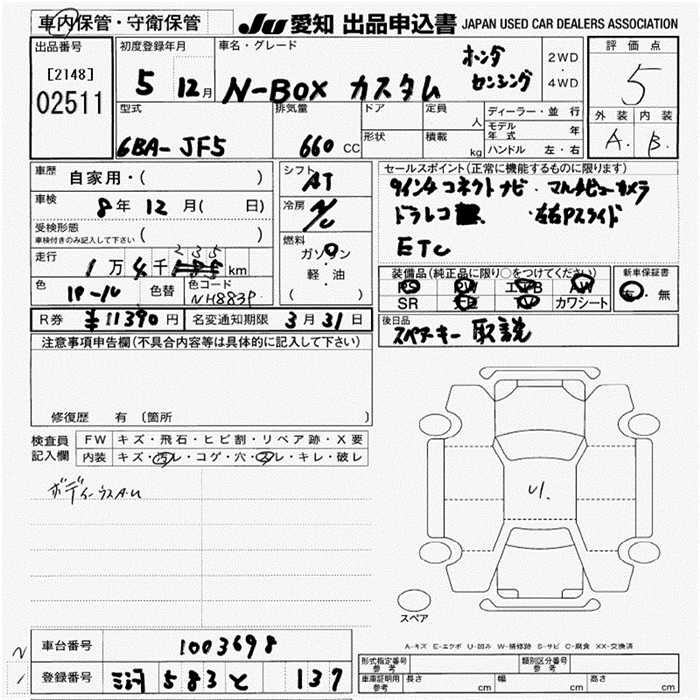 車内保管・守衛保管 JU 愛知 出品申込書 JAPAN USED CAR DEALERS ASSOCIATION
出品番号 初度登録年月 車名・グレード 評価点
[2148] 5 12月 N-BOX カスタム ホンダ センシング 2WD ・ 4WD 5
02511
型式 排気量 ドア 定員 人 ディーラー・並行 外装 内装
6BA-JF5 660 CC 形状 積載 kg モデル年式 年 A. B.
ハンドル 左・右
車歴 自家用・( ) シフト AT セールスポイント(正常に機能するものに限ります)
車検 8年 12月( 日) 冷房 A/C 9インチコネクトナビ・マルチビューカメラ
受検形態 ドラレコ ・左右Pスライド
車検付きのみ記入して下さい( ) 燃料 ガソリン ETC
走行 1万 4千 235 km ・
軽・油 装備品(純正品に限り○をつけてください) 新車保証書
色 パール 色替 色コード NH883P ( ) PS PW エアB AW 有・無
SR TV カワシート
R券 ¥11390円 名変通知期限 3月31日 後日品
スペアキー 取説
注意事項申告欄(不具合内容等は具体的に記入して下さい)
修復歴 有〔箇所 〕
検査員 FW キズ・飛石・ヒビ割・リペア跡・X要
記入欄 内装 キズ・汚レ・コゲ・穴・スレ・キレ・破レ
ボディーウスA.U
U1.
スペア
A-キズ E-エクボ U-凹み W-補修跡 S-サビ C-腐食 XX-交換済
車台番号 1003698
登録番号 三河 583 と 137
型式指定番号 参考 類別区分番号 参考
車庫証明用 参考 長さ cm 幅 cm 高さ cm